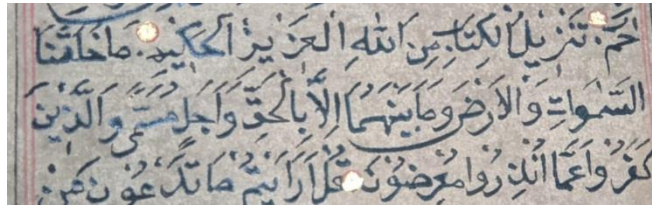 حٰمٓ تَنْزِيلُ الْكِتَابِ مِنَ اللّٰهِ الْعَزِيزِ الْحَكِيمِ مَا خَلَقْنَا
السَّمٰوَاتِ وَالْاَرْضَ وَمَا بَيْنَهُمَا اِلَّا بِالْحَقِّ وَاَجَلٍ مُسَمًّى وَالَّذِينَ
كَفَرُوا عَمَّا اُنْذِرُوا مُعْرِضُونَ قُلْ اَرَاَيْتُمْ مَا تَدْعُونَ مِنْ